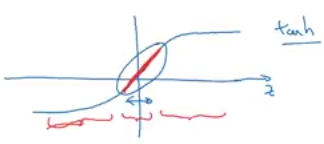 tanh
z